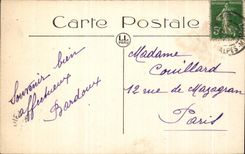 Carte Postale
LL
Souvenir bien
affectueux
Bardoux
Madame
Couillard
12 rue de Mazagran
Paris